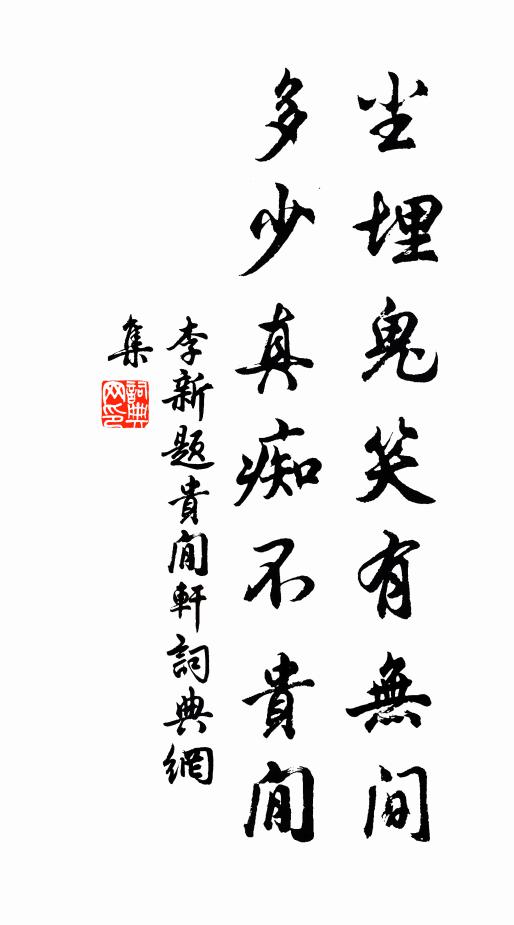 尘埋鬼笑有無间
多少真痴不貴閒
李新題貴閒軒詞典網
集
詞典網印